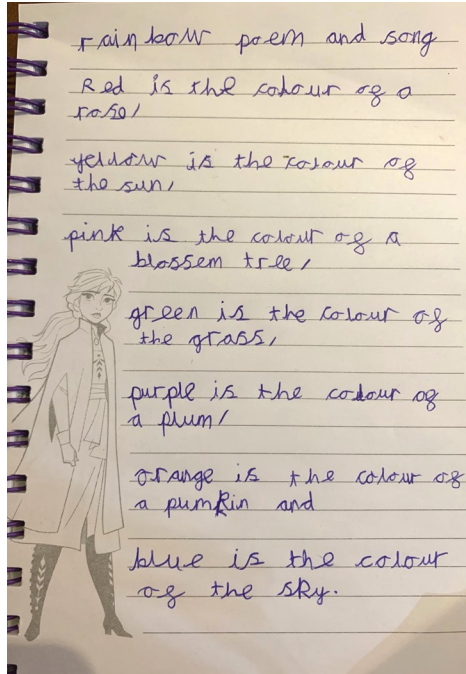 rainbow poem and song
Red is the colour of a
rose,
yellow is the colour of
the sun,
pink is the colour of a
blossem tree,
green is the colour of
the grass,
purple is the colour of
a plum,
orange is the colour of
a pumpkin and
blue is the colour
of the sky.